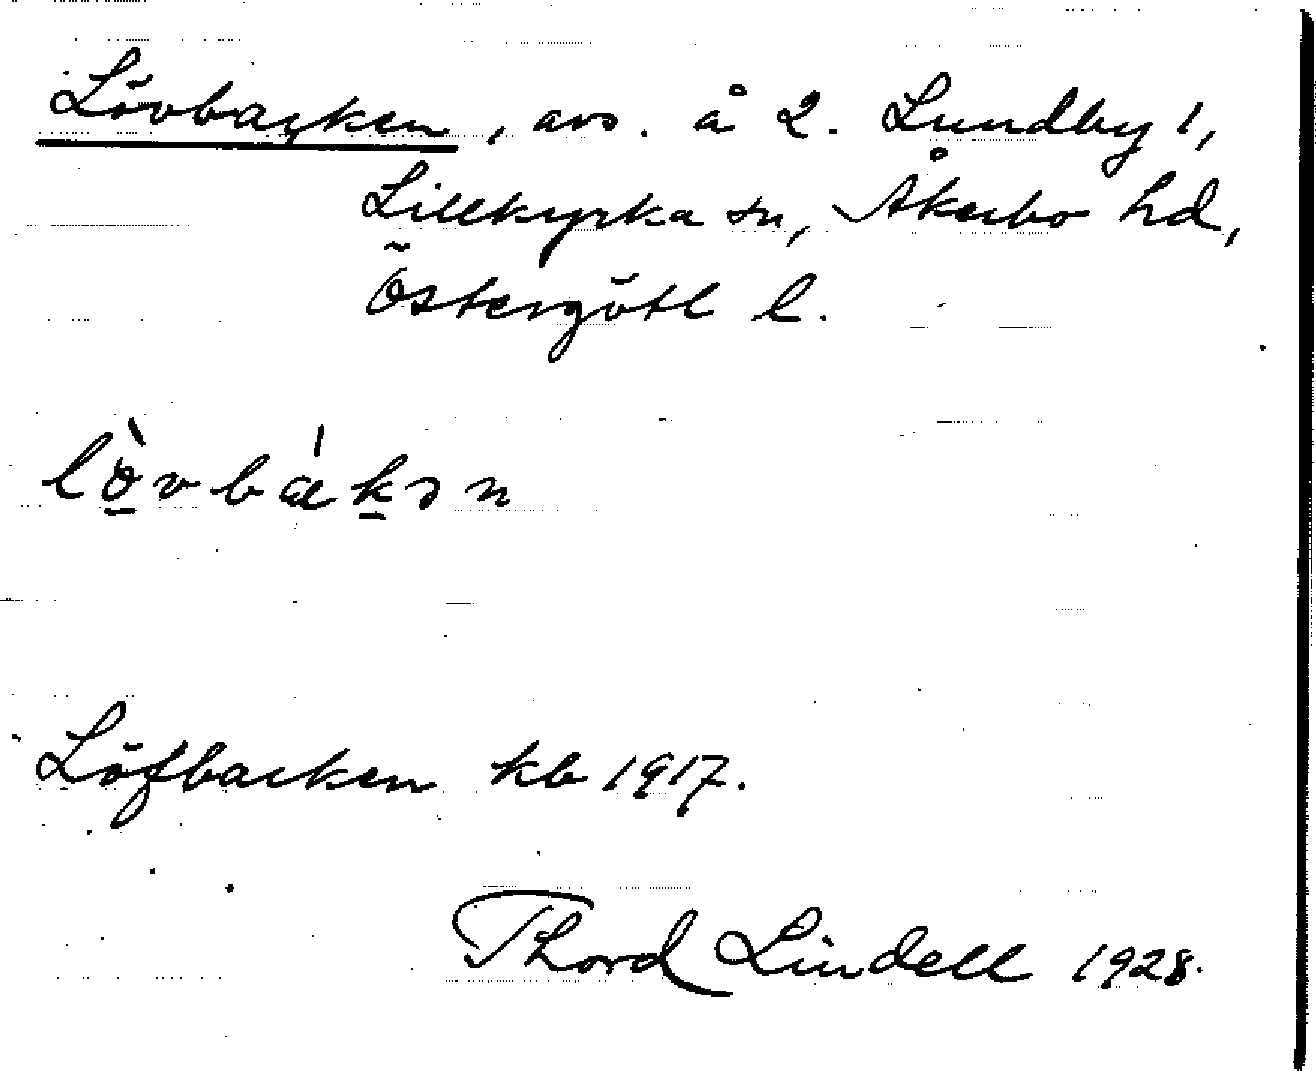 Lövbacken, avs. å 2. Lundby 1,
Lillkyrka sn, Åkerbo hd,
Östergötl l.
lö̀vbákən
Löfbacken kb 1917.
Thord Lindell 1928.